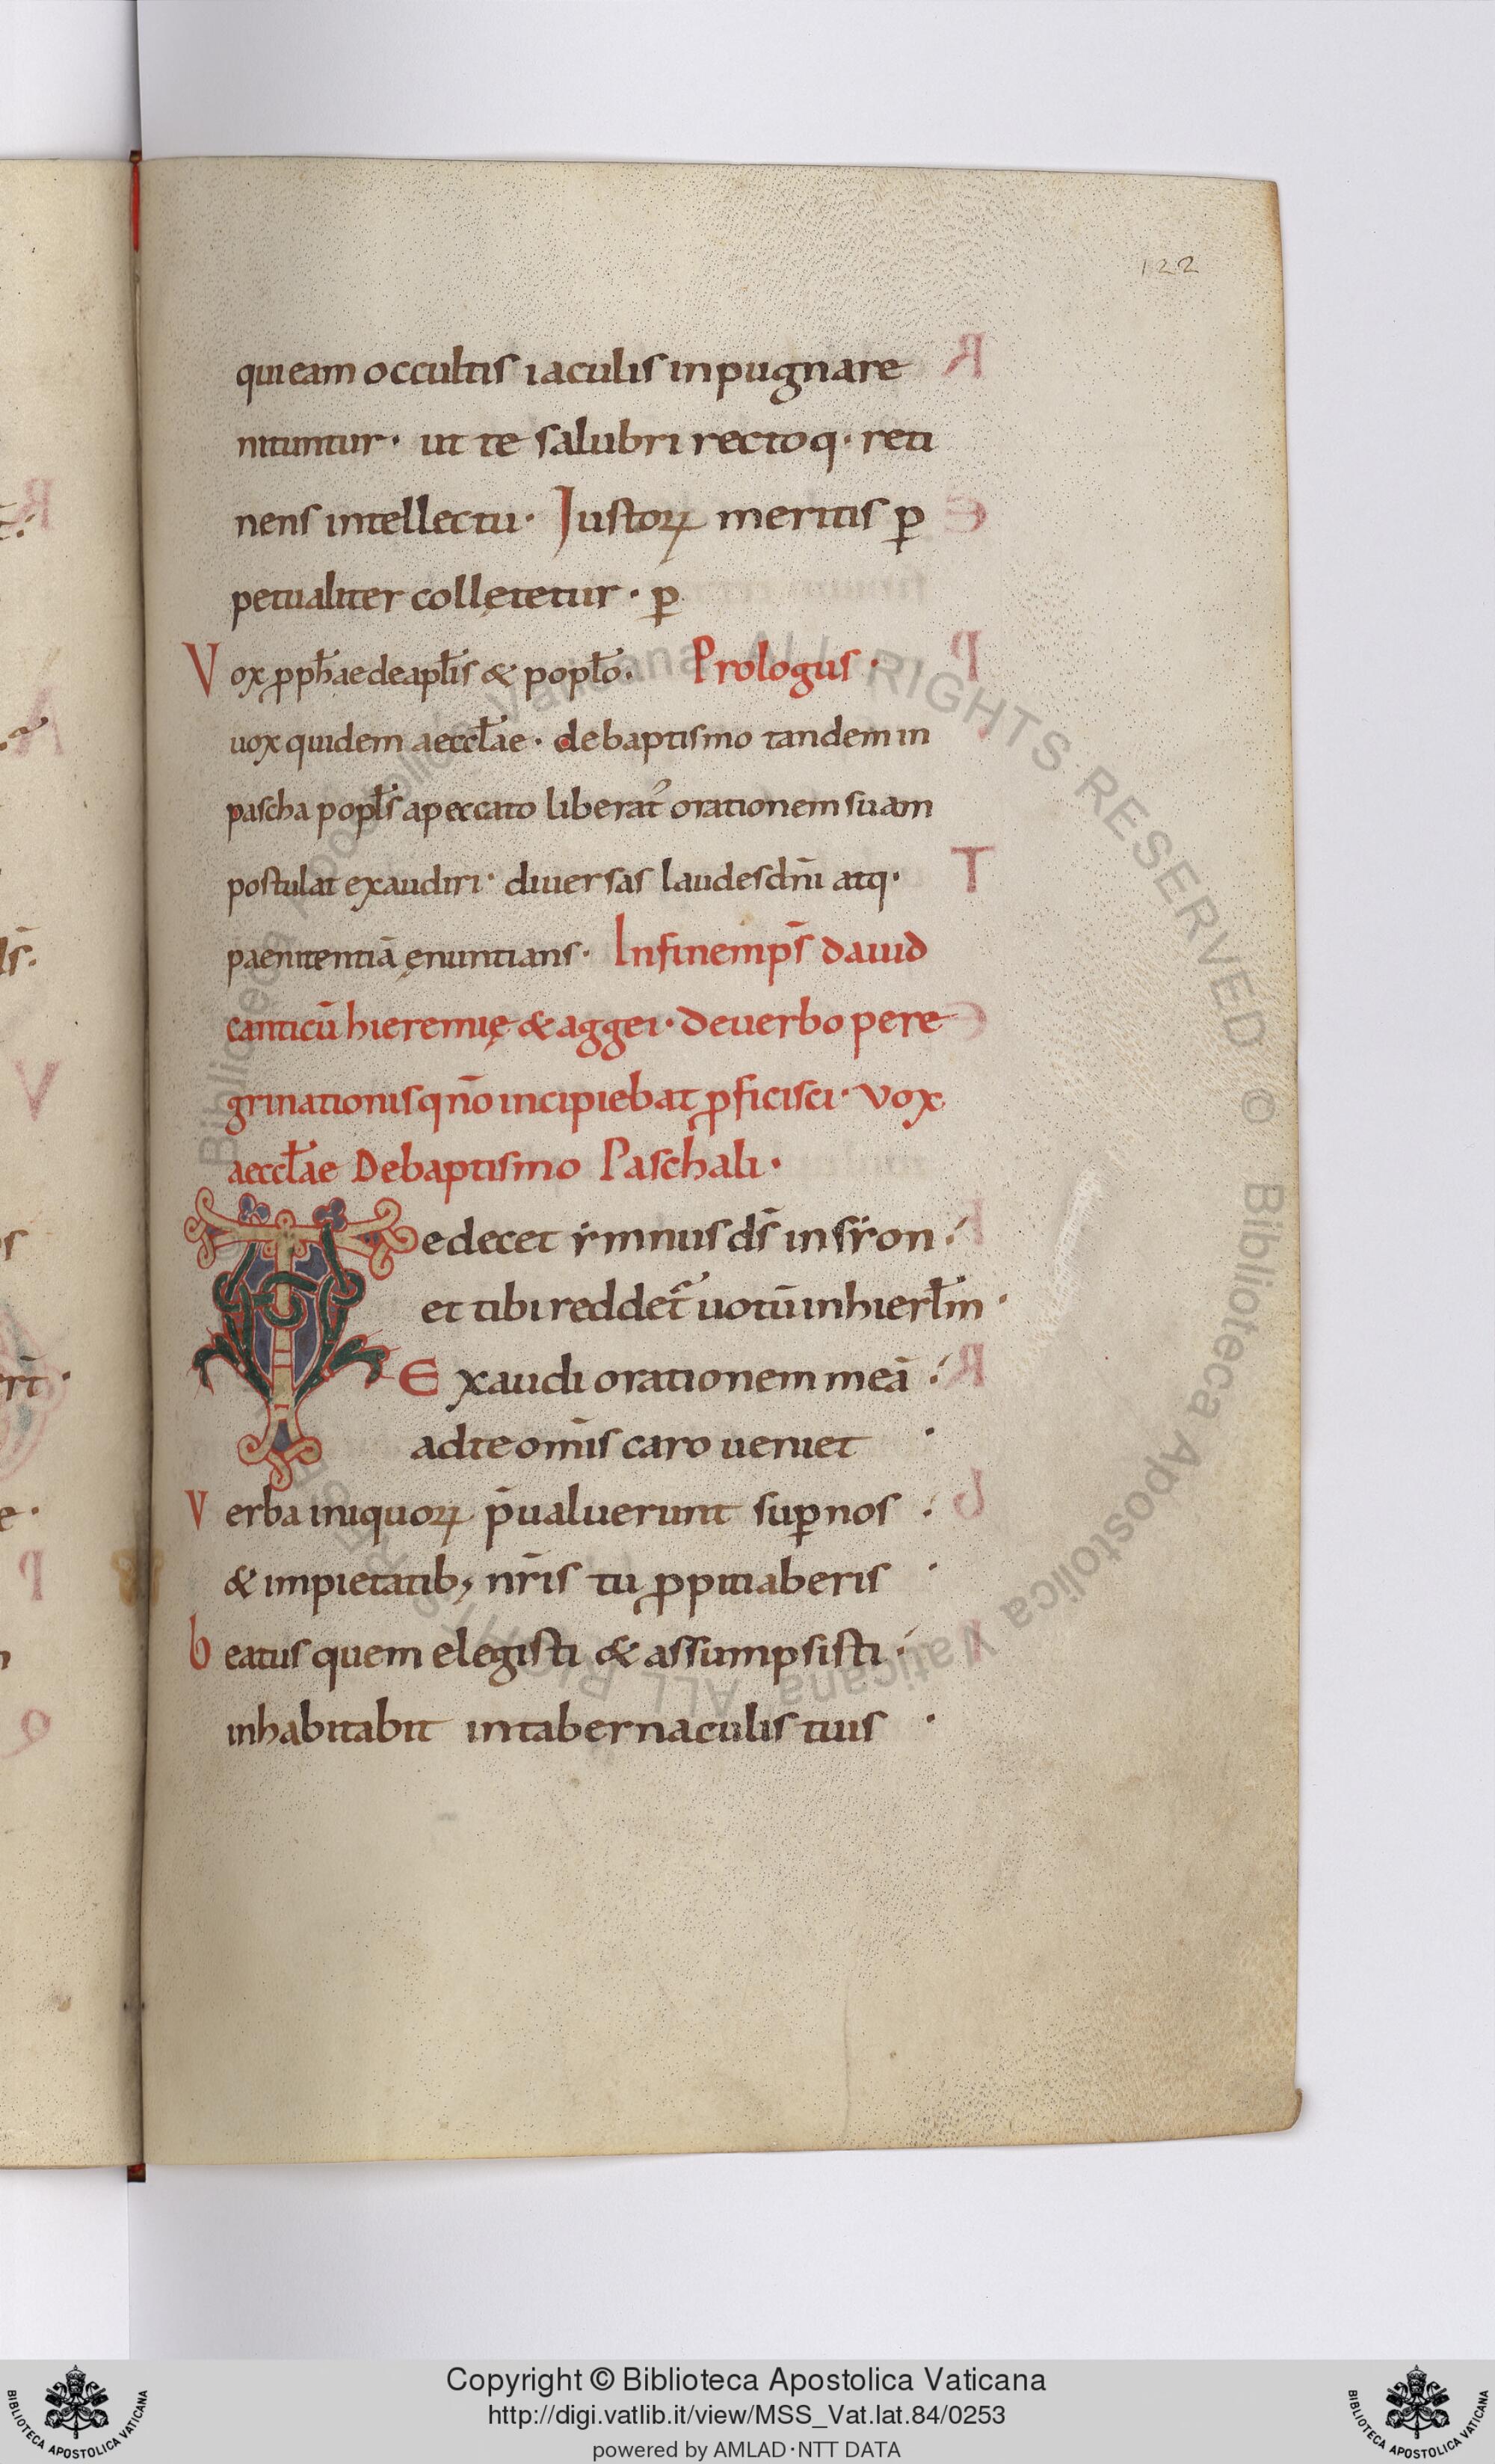 122
qui eam occultis iaculis inpugnare
nituntur· ut te salubri rectoq· reti
nens intellectu· Iustoꝝ meritis p̲
petualiter collętetur· p̲
Vox ꝓph̄ae de apłis & popło· Prologus·
uox quidem aeccłae· de baptismo tandem in
pascha popłs a peccato liberat᷒ orationem suam
postulat exaudiri· diuersas laudes dn̄i atq·
paenitentiā ęnuntians· In finem ps̄ dauid
canticū hieremię & aggei· de uerbo pere
grinationis qn̄o incipiebat ꝓficisci· vox
aeccłae De baptismo Paschali·
Te decet ẏmnus ds̄ in sẏon·
et tibi reddet᷒ uotū in hierłm·
Exaudi orationem meā·
ad te om̄is caro ueniet·
Verba iniquoꝝ p̄ualuerunt suꝑ nos·
& impietatib; nr̄is tu ꝓpitiaberis·
beatus quem elegisti & assumpsisti·
inhabitabit in tabernaculis tuis·
Copyright © Biblioteca Apostolica Vaticana
http://digi.vatlib.it/view/MSS_Vat.lat.84/0253
powered by AMLAD·NTT DATA
BIBLIOTECA APOSTOLICA VATICANA
BIBLIOTECA APOSTOLICA VATICANA